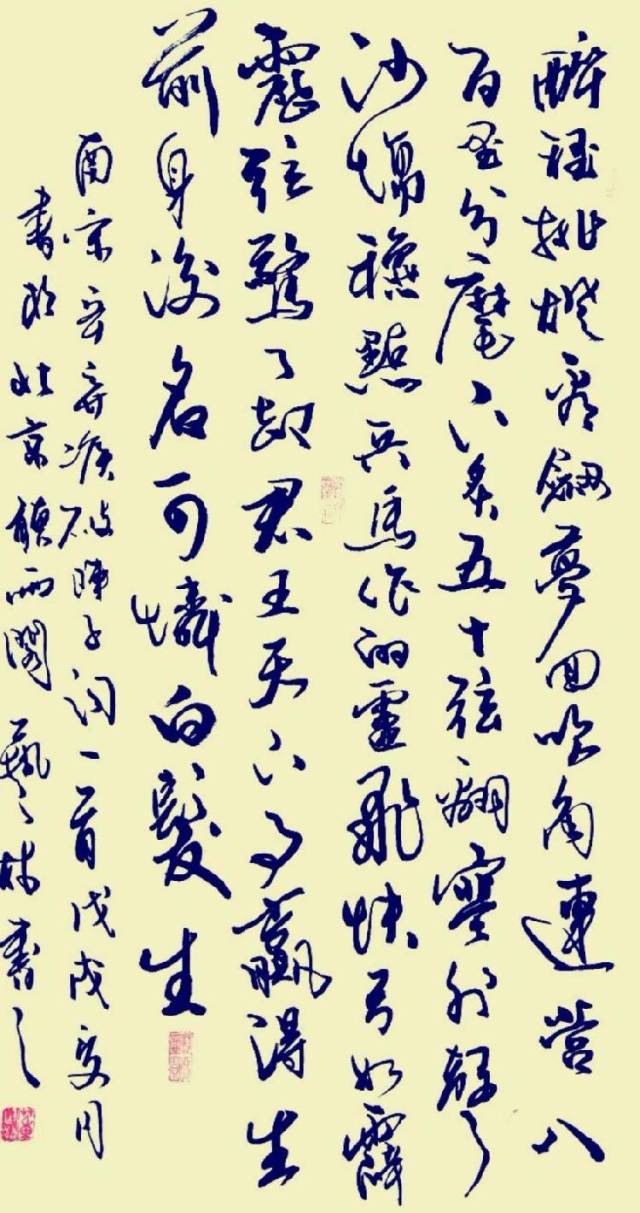 醉裡挑燈看劍夢回吹角連營八
百里分麾下炙五十弦翻塞外聲
沙場穐點兵馬作的盧飛快弓如霹
靂弦驚了卻君王天下事贏得生
前身後名可憐白髮生
南宋辛棄疾破陣子词一首戊戌夏月
書於北京聽雨閣藝林書之